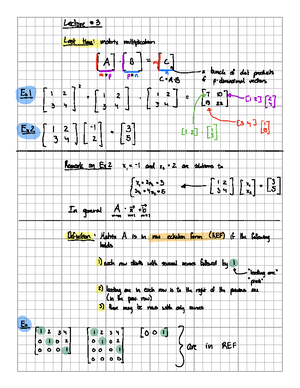 Lecture #3
Last time: matrix multiplication
[ A ] [ B ] = [ C ]
m×p p×n
C = A·B
a bunch of dot products
of p-dimensional vectors
Ex1 [1 2; 3 4]² = [1 2; 3 4] · [1 2; 3 4] = [7 10; 15 22]
[1 2] [2; 4]
[1 2] [1; 3]
[3 4] [1; 3]
Ex2 [1 2; 3 4] [-1; 2] = [3; 5]
Remark on Ex2 x₁ = -1 and x₂ = 2 are solutions to
{ x₁ + 2x₂ = 3
3x₁ + 4x₂ = 5
[1 2; 3 4] [x₁; x₂] = [3; 5]
In general A · x = b
Definition: Matrix A is in row echelon form (REF) if the following
holds
1) each row starts with several zeroes followed by 1
"leading one"
"pivot"
2) leading one in each row is to the right of the previous one
(in the prev. row)
3) there may be rows with only zeroes
Ex
[1 2 3 4; 0 1 0 2; 0 0 0 1]
[1 2 3 4; 0 1 0 2; 0 0 0 1; 0 0 0 0]
[0 0 1]
} are in REF